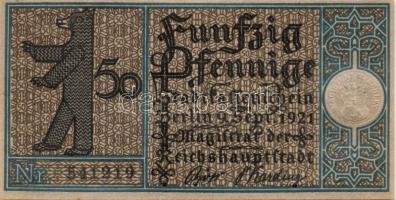 50
Funfzig
Pfennige
Stadtkassenschein
Berlin 9. Sept. 1921
Magistrat der
Reichshauptstadt
Nr. 541219